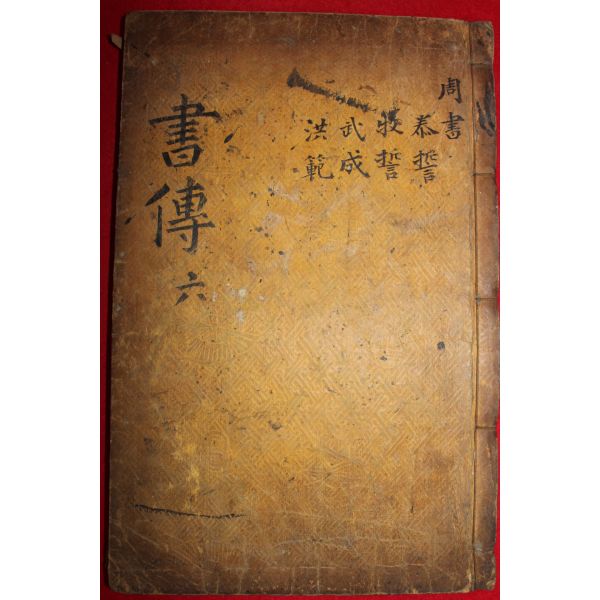 周書
泰誓
牧誓
武成
洪範
書傳 六